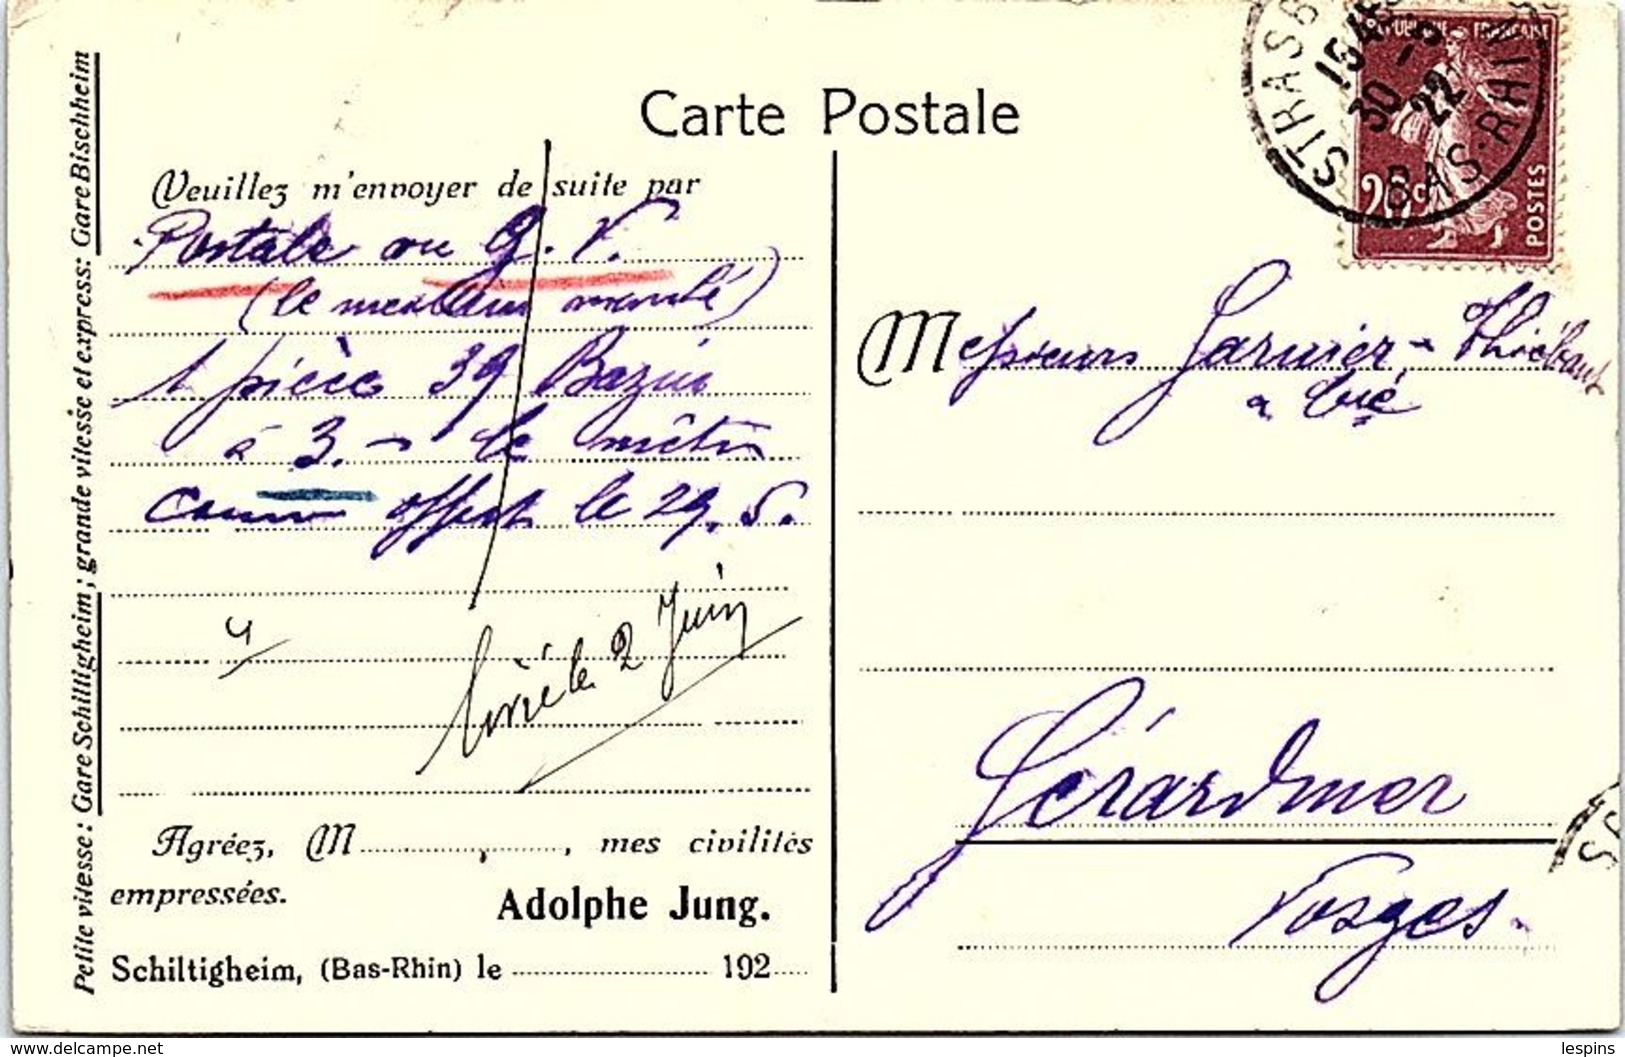 Carte Postale
Petite vitesse: Gare Schiltigheim; grande vitesse et express: Gare Bischheim
Veuillez m'envoyer de suite par
Postale ou g. V.
(le meilleur marché)
1 pièce 39 Bazin
à 3.- le mètre
comme offert le 29. 5.
4
livré le 2 Juin
Agréez, M , mes civilités
empressées.
Adolphe Jung.
Schiltigheim, (Bas-Rhin) le 192
STRASB
1545
30 - 5
22
BAS-RHIN
REPUBLIQUE FRANÇAISE
20c
POSTES
Messieurs Garnier - Thiébaut
& Cie
Gérardmer
Vosges.
lespins
www.delcampe.net